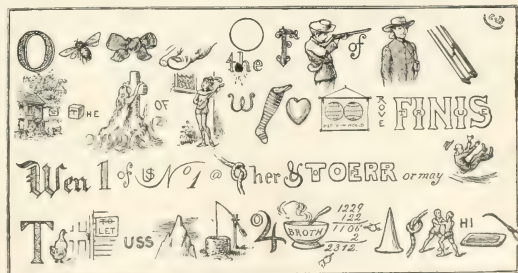 O the of
HE OF W ROVE FINIS
Wen 1 of US No 1 @ her & TO ERR or may
T TO LET USS o 4 BROTH 1229 122 1106 2 2312. HI